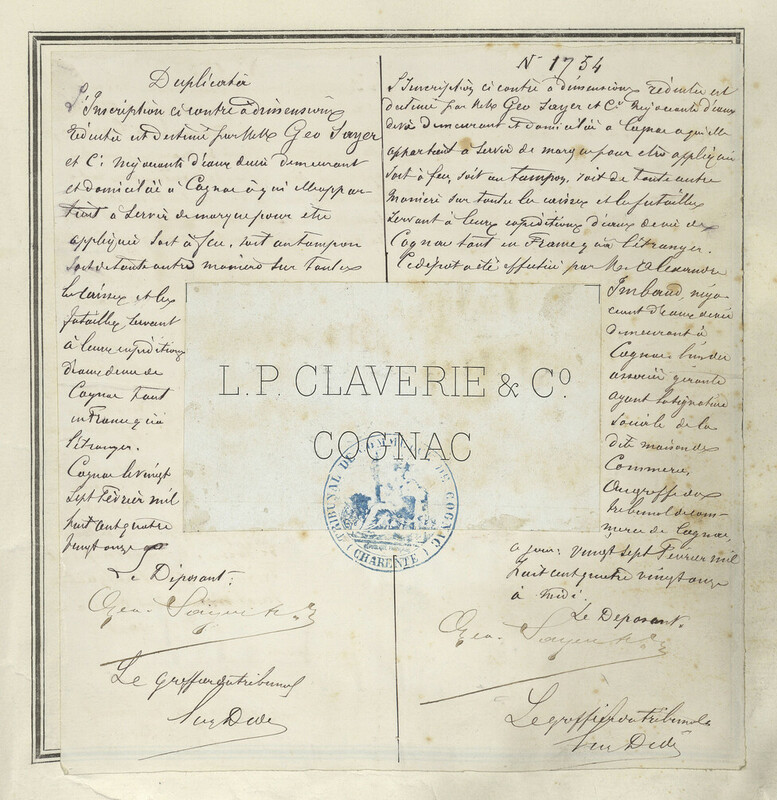 Duplicata
L'Inscription ci contre à dimensions
réduites est destiné par MM. Geo Sayer
et Cie Négociants d'eaux de vie demeurant
et domiciliés à Cognac à qui elle appar-
tient à servir de marque pour être
appliquée soit à feu, soit au tampon
soit de toute autre manière sur toutes
les caisses et les
futailles servant
à leurs expéditions
d'eaux de vie de
Cognac tant
en France qu'à
l'étranger.
Cognac le vingt
sept Février mil
huit cent quatre
vingt onze
Le Déposant:
Geo. Sayer &
Le greffier du tribunal
Dédé
No 1754
L'Inscription ci contre à dimensions réduites est
destiné par MM. Geo Sayer et Cie Négociants d'eaux
de vie demeurant et domiciliés à Cognac à qui elle
appartient à servir de marque pour être appliquée
soit à feu, soit au tampon, soit de toute autre
manière sur toutes les caisses et les futailles
servant à leurs expéditions d'eaux de vie de
Cognac tant en France qu'à l'étranger.
Ce dépôt a été effectué par M. Alexandre
Imbaud, négo-
ciant d'eaux de vie
demeurant à
Cognac l'un des
associés gérants
ayant la signature
sociale de la
dite maison de
Commerce,
Au greffe du
tribunal de com-
merce de Cognac,
à jour: vingt sept Février mil
huit cent quatre vingt onze
à midi.
Le Déposant.
Geo. Sayer &
Le greffier du tribunal
Dédé
L.P. CLAVERIE & Co.
COGNAC
TRIBUNAL DE COMMERCE DE COGNAC
(CHARENTE)